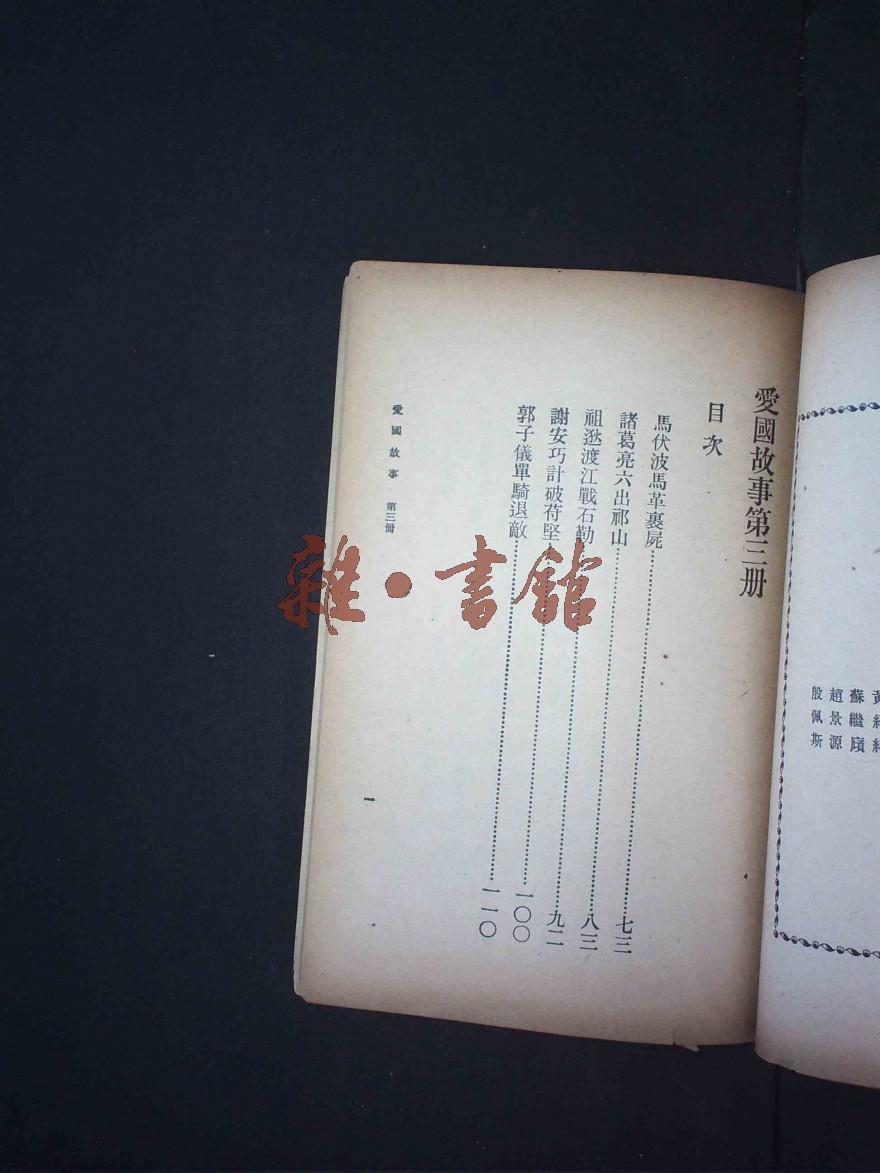 愛國故事第三册
目次
馬伏波馬革裹屍……七三
諸葛亮六出祁山……八三
祖逖渡江戰石勒……九二
謝安巧計破苻堅……一〇〇
郭子儀單騎退敵……一一〇
愛國故事 第三冊
一
蘇繼廎
趙景源
殷佩斯
雜·書館